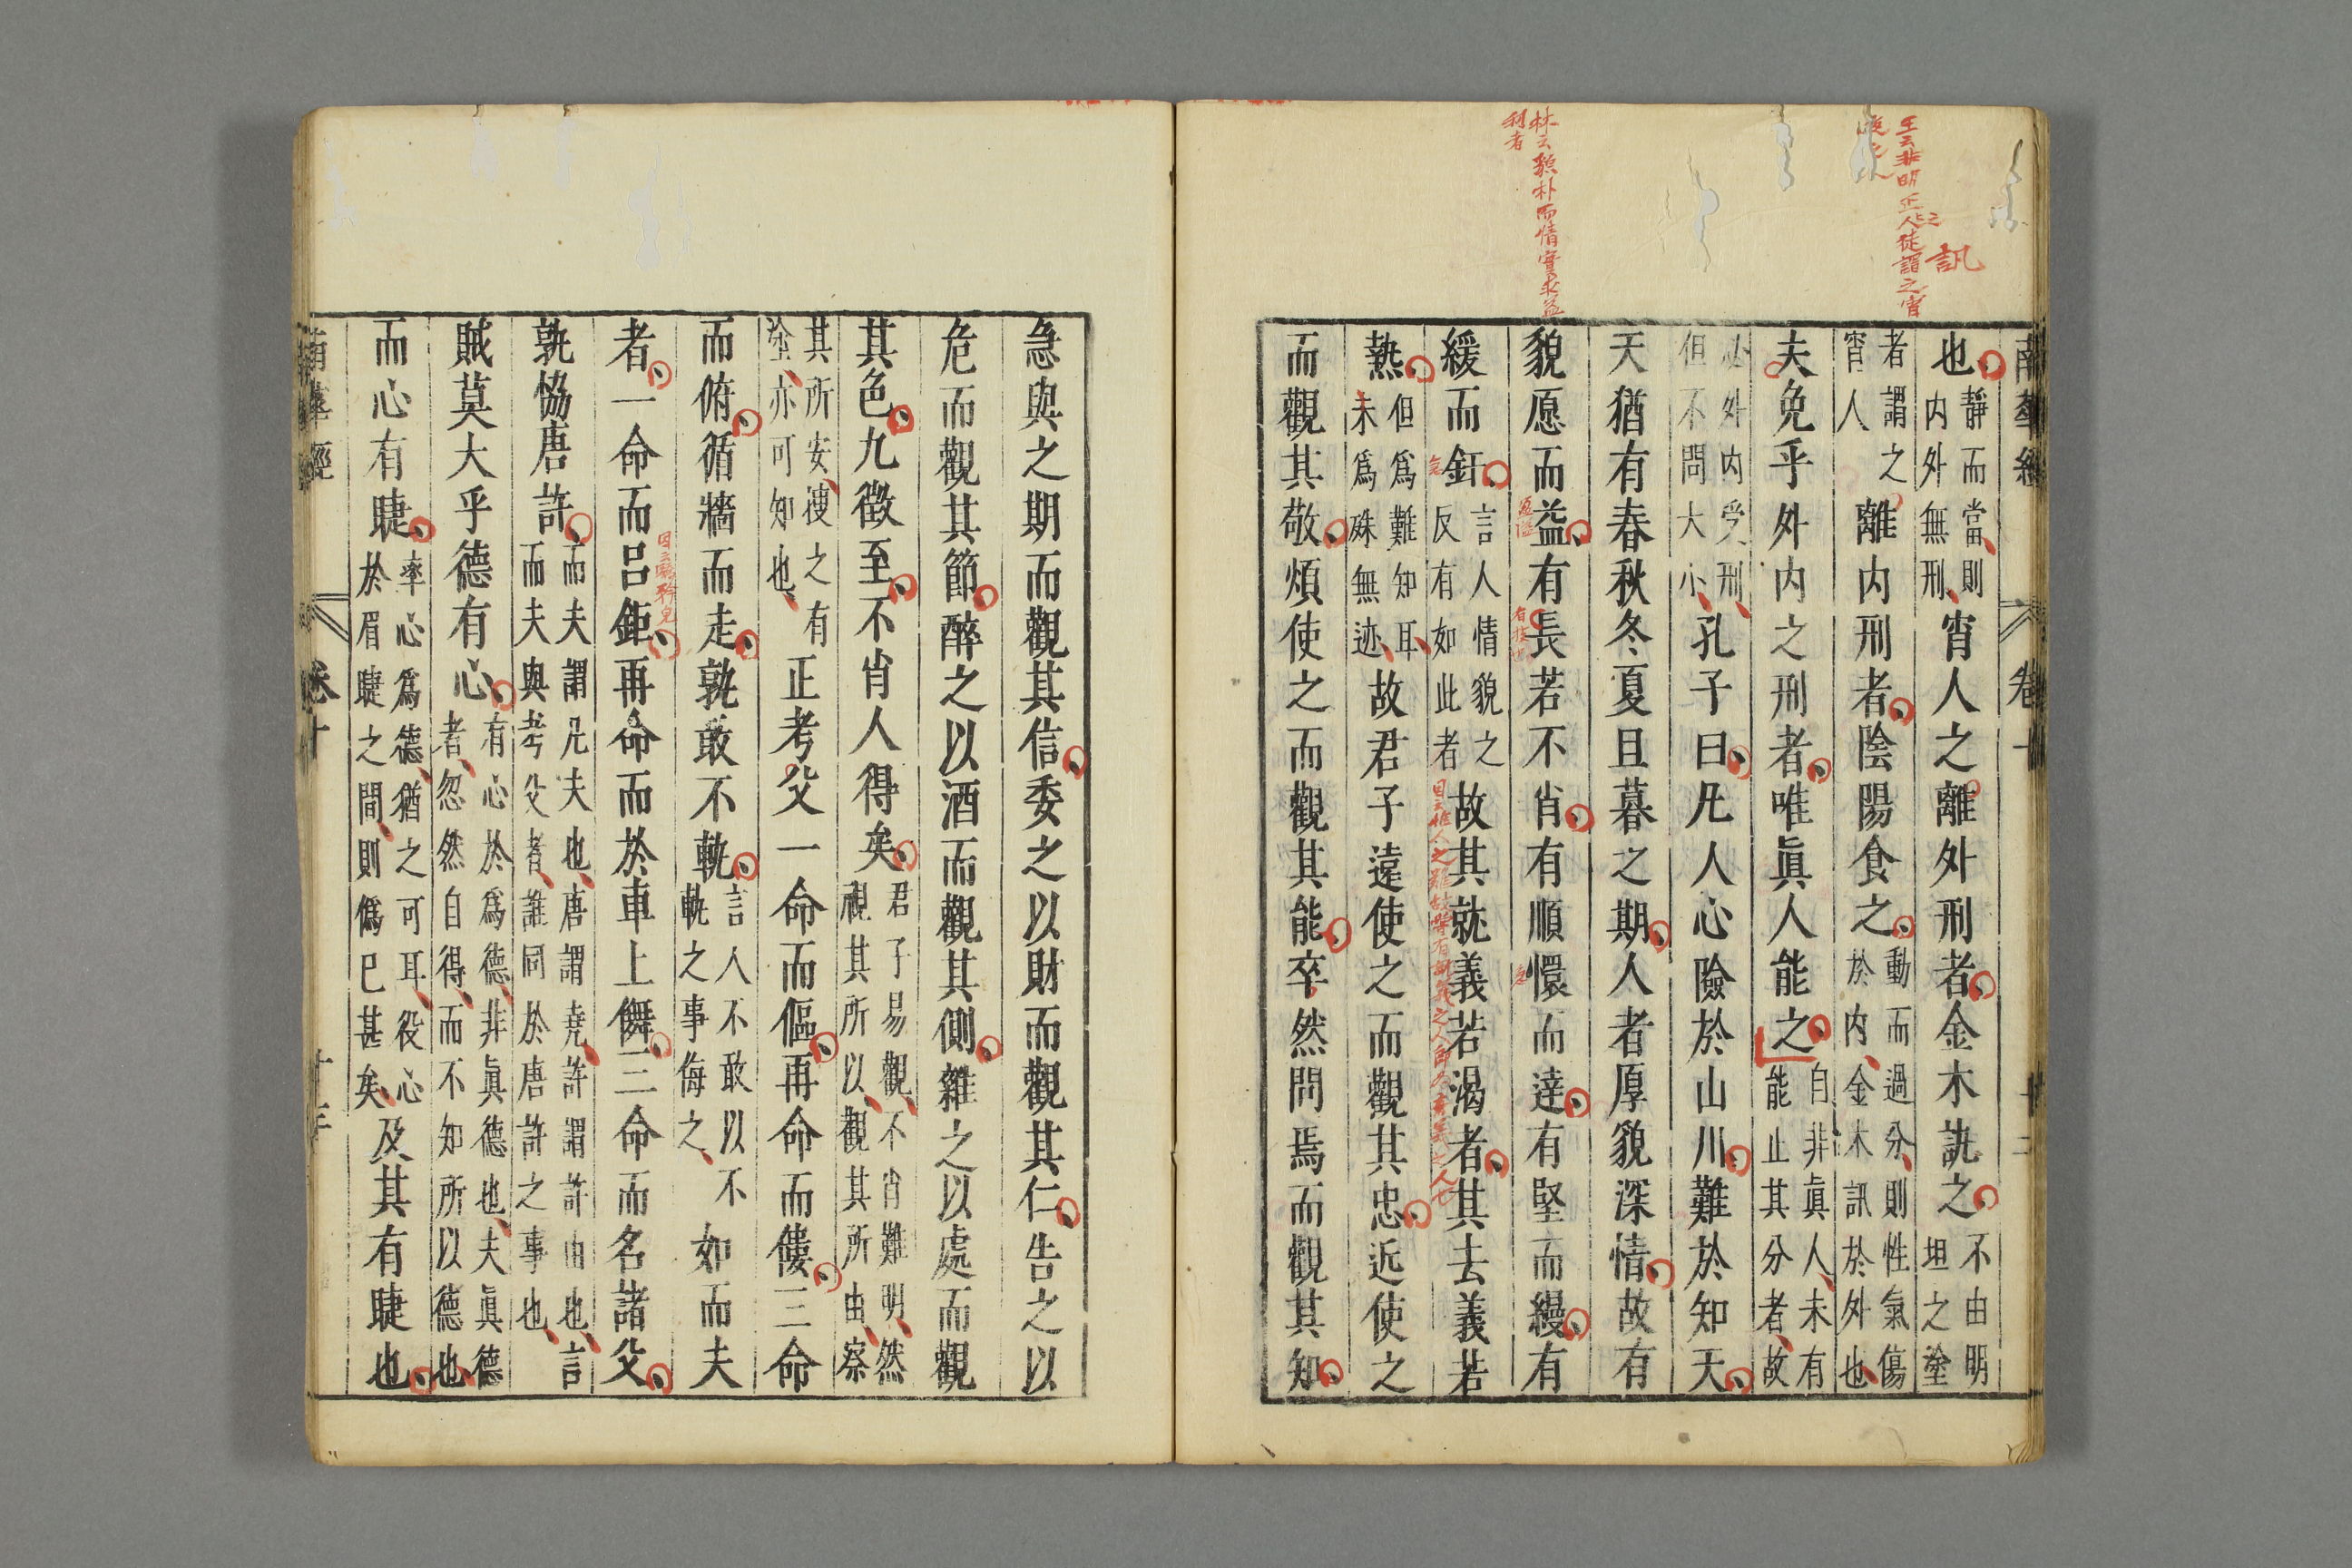 訊
王云非明正之徒謂之宵
林云貌朴而情實求益
利者
南華經 卷十
也靜而當則内外無刑宵人之離外刑者金木訛之不由明坦之塗
者謂之宵人離内刑者陰陽食之動而過分則性氣傷於内金木訊於外也
夫免乎外内之刑者唯眞人能之自非眞人未有能止其分者故
必外内受刑但不問大小孔子曰凡人心險於山川難於知天
天猶有春秋冬夏且暮之期人者厚貌深情故有
貌愿而益有長若不肖有順懁而達有堅而縵有
緩而釬言人情貌之反有如此者故其就義若渴者其去義若
熱但爲難知耳未爲殊無迹故君子遠使之而觀其忠近使之
而觀其敬煩使之而觀其能卒然問焉而觀其知
急與之期而觀其信委之以財而觀其仁告之以
危而觀其節醉之以酒而觀其側雜之以處而觀
其色九徵至不肖人得矣君子易觀不肖難明然視其所以觀其所由察
其所安搜之有塗亦可知也正考父一命而傴再命而僂三命
而俯循牆而走孰敢不軌言人不敢以不軌之事侮之如而夫
者一命而呂鉅再命而於車上儛三命而名諸父
孰協唐許而夫謂凡夫也唐謂堯許謂許由也言而夫與考父者誰同於唐許之事也
賊莫大乎德有心有心於爲德非眞德也夫眞德者忽然自得而不知所以德也
而心有睫率心爲德猶之可耳役心於眉睫之間則僞已甚矣及其有睫也
南華經 卷十 十三